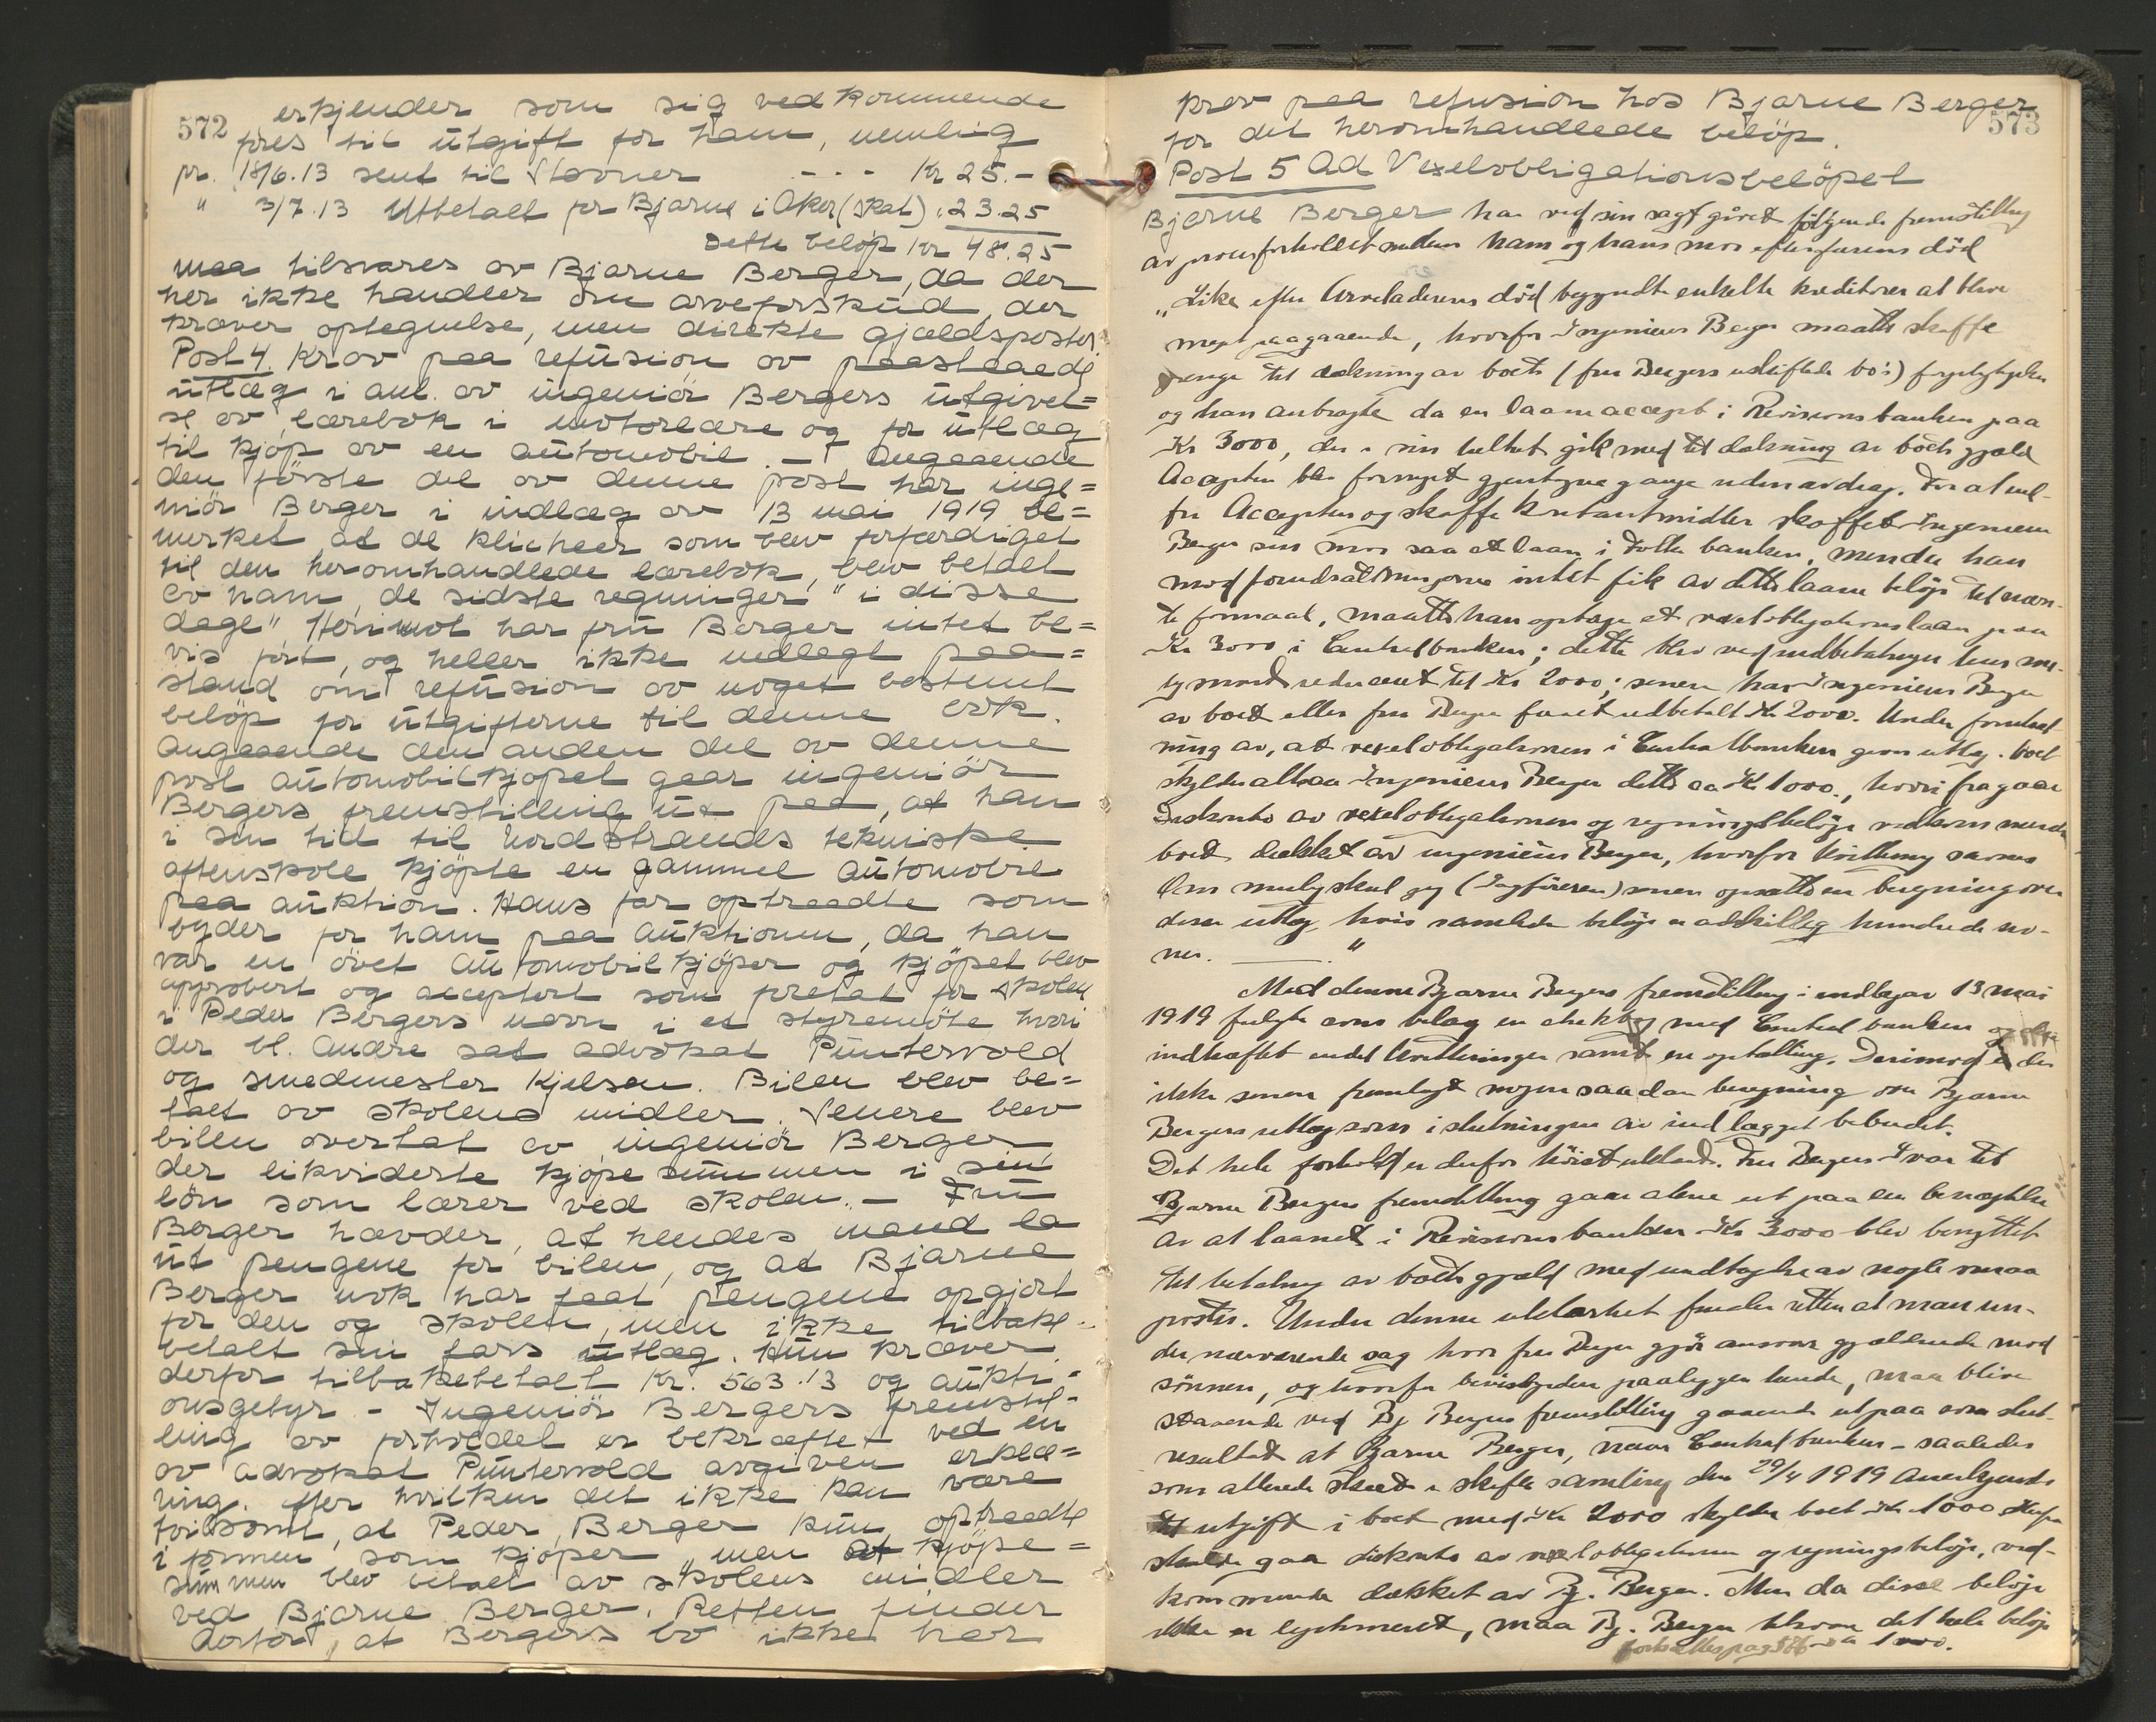 572
erkjender som sig vedkommende
föres til utgift for ham, nemlig
pr. 18/6.13 sent til Stavner - - - Kr 25.-
" 3/7.13 Utbetalt for Bjarne i Aker (skat) " 23.25
Dette belöp Kr 48.25
maa tilsvares av Bjarne Berger, da der
her ikke handler om arveforskud, der
kræver optegnelse, men direkte gjældsposter.
Post 4. Krav paa refusion av paastaaede
utlæg i anl. av ingeniör Bergers utgivel=
se av lærebok i motorlære og for utlæg
til kjöp av en automobil. - Angaaende
den förste del av denne post har inge=
niör Berger i indlæg av 13 mai 1919 be=
merket at de klicheer som blev forfærdiget
til den heromhandlede lærebok, blev betalt
av ham, de sidste regninger "i disse
dage". Herimot har fru Berger intet be=
vis fört, og heller ikke nedlagt paa=
stand om refusion av noget bestemt
belöp for utgifterne til denne bok.
Angaaende den anden del av denne
post automobilkjöpet gaar ingeniör
Bergers fremstilling ut paa, at han
i sin tid til Nordstrands tekniske
aftenskole kjöpte en gammel automobil
paa auktion. Hans far optraadte som
byder for ham paa auktionen, da han
var en övet automobilkjöper og kjöpet blev
approbert og acceptert som foretat for skolen
i Peder Bergers navn i et styremöte hvori
der bl. andre sat advokat Puntervold
og smedmester Kjelsen. Bilen blev be=
talt av skolens midler. Senere blev
bilen overtat av ingeniör Berger
der likviderte kjöpesummen i sin
lön som lærer ved skolen. - Fru
Berger hævder, at hendes mand la
ut pengene for bilen, og at Bjarne
Berger nok har faat pengene opgjort
for den og skolen, men ikke tilbake-
betalt sin fars utlæg. Hun kræver
derfor tilbakebetalt Kr. 563.13 og aukti-
onsgebyr. - Ingeniör Bergers fremstil-
ling av forholdet er bekræftet ved en
av advokat Puntervold avgiven erklæ=
ring. efter hvilken det ikke kan være
tvilsomt, at Peder Berger kun optraadte
i formen som kjöper, men at kjöpe=
summen blev betalt av skolens midler
ved Bjarne Berger. Retten finder
derfor, at Bergers bo ikke har
573
krav paa refusion hos Bjarne Berger
for det heromhandlede belöp.
Post 5 Ad Vexelobligationsbelöpet
Bjarne Berger har ved sin sagf givet fölgende fremstilling
av forholdet mellem ham og hans mor efter farens död
"Like efter Arveladerens död begyndte enkelte kreditorer at blive
meget paagaaende, hvorfor Ingeniör Berger maatte skaffe
penge til dækning av boets (fru Bergers uskiftede bo's) forpligtelser
og han anbragte da en laaneaccept i Revisionsbanken paa
Kr 3000, der i sin helhet gik med til dækning av boets gjæld
Accepten blev fornyet gjentagne gange uten avdrag. For at ind-
fri Accepten og skaffe Kontantmidler skaffet Ingeniör
Berger sin mor saa et laan i Folkebanken, men da han
mod forudsætningerne intet fik av dette laanebelöp til nævn-
te formaal, maatte han optage et vexelobligationslaan paa
Kr 3000 i Centralbanken; dette blev ved indbetalinger
reduceret til Kr 2000; senere har Ingeniör Berger
av boet eller fru Berger faaet utbetalt Kr 2000. Under forutsæt-
ning av, at vexelobligationen i Centralbanken boet
skylder altsaa Ingeniör Berger dette ca Kr 1000., hvori fragaar
Diskonto av vexelobligationen og regningsbelöp vedkommende
boet dækket av ingeniör Berger, hvorfor kvittering
Om mulig skal jeg (Sagföreren) senere opsætte en beregning over
disse utlæg hvis samlede belöp er adskillig hundrede kro-
ner. "
Med denne Bjarne Bergers fremstilling i indlæg av 13 mai
1919 fulgte som bilag en med Centralbanken
indhæftet endel kvitteringer samt en optælling. Derimod er der
ikke senere fremlagt nogen saadan beregning over Bjarne
Bergers utlæg som i slutningen av indlægget bebudet.
Det hele forhold er derfor höist uklart. Fru Bergers svar til
Bjarne Bergers fremstilling gaar alene ut paa en benægtelse
av at laanet i Revisionsbanken Kr 3000 blev benyttet
til betaling av boets gjæld med undtagelse av nogle smaa
poster. Under denne uklarhet finder retten at man un-
der nærværende sag hvor fru Berger gjör ansvar gjældende mod
sönnen, og hvorfor bevisbyrden paaligger hende, maa blive
staaende ved Bj Bergers fremstilling gaaende ut paa som slut-
resultat at Bjarne Berger, naar Centralbanken - saaledes
som allerede skeet i skiftesamling den 29/4 1919 anerkjendt
til utgift i boet med Kr 2000 skylder boet Kr 1000 Herfra
skulde gaa diskonto av vexelobligationen og regningsbelöp, ved-
kommende dækket av Bj. Berger. Men da disse belöp
ikke er legitimeret, maa Bj. Berger tilsvare det hele belöp
1000.